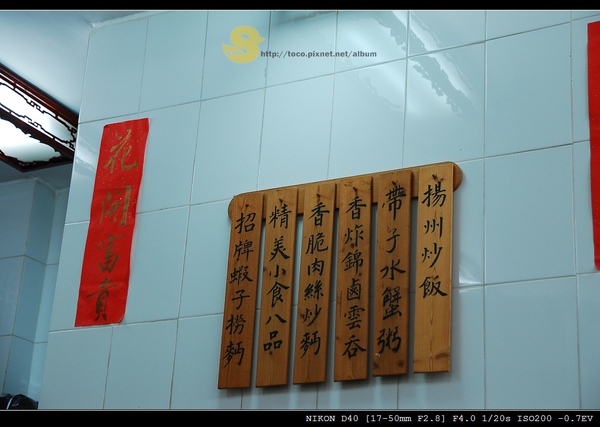 http://toco.pixnet.net/album
花開富貴
揚州炒飯
帶子水蟹粥
香炸錦鹵雲吞
香脆肉絲炒麵
精美小食八品
招牌蝦子撈麵
NIKON D40 [17-50mm F2.8] F4.0 1/20s ISO200 -0.7EV